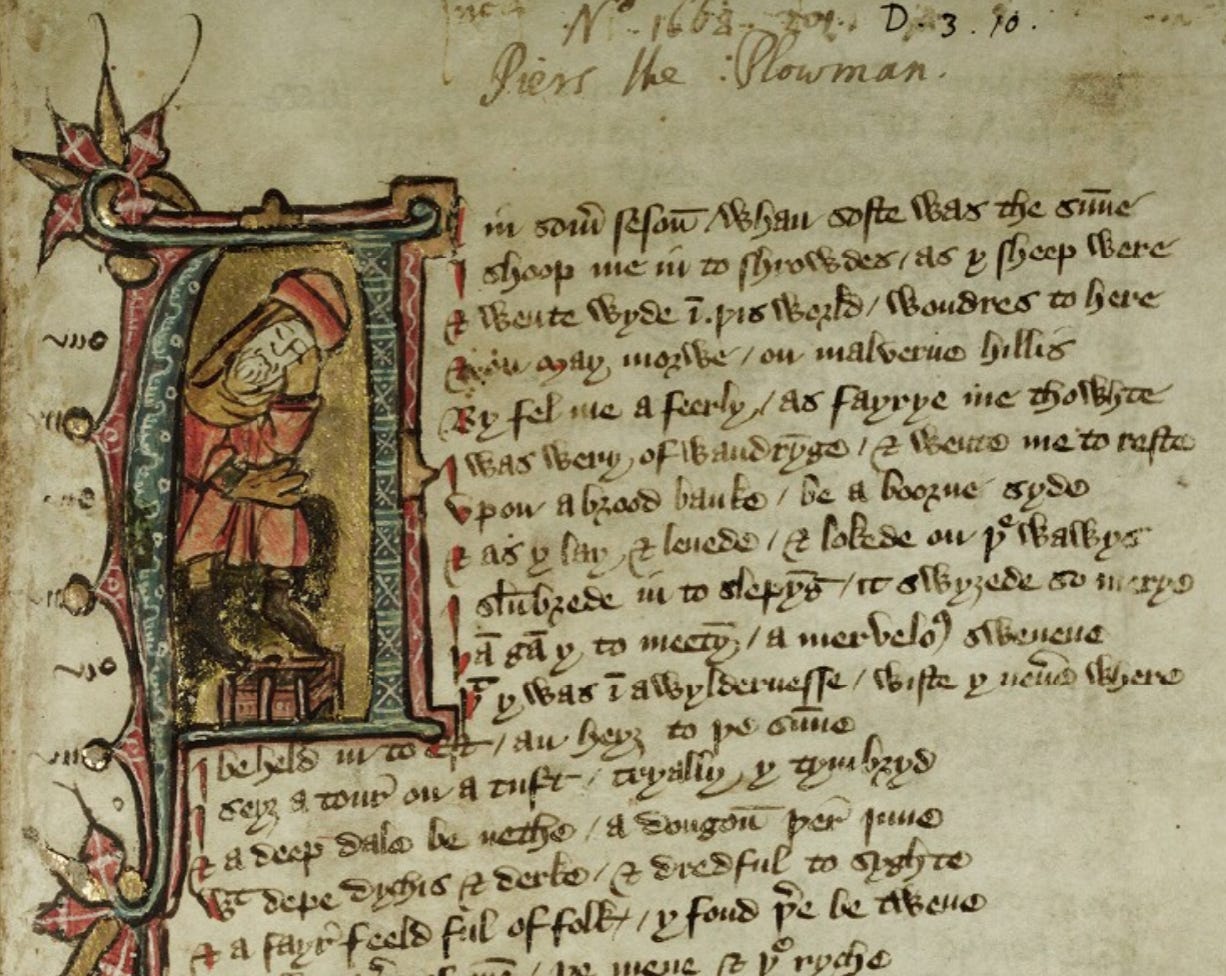 D. 3. 10.
Piers the Plowman.
in som̄ sesoū / whan softe was the sūne
I shoop me in to shrowdes / as y sheep were
& wente wyde ī þis world / wondres to here
& on may morwe / on malverne hillis
By fel me a feerly / as fayrye me thowhte
I was wery of wandrȳge / & wente me to reste
vpon a brood banke / be a boorne syde
& as y lay & lenede / & lokede on þᵉ wawys
I slūbrede in to slepȳg / it swyȝede so merye
þā gā y to meetȳ / a merveloꝰ swevene
þᵗ y was ī a wyldernesse / wiste y nev̄e where
I beheld in to est / an heyȝ to þe sūne
I seyȝ a tour on a tuft / tryally y tymbryd
& a deep dale be nethe / a dongoū þer inne
Wᵗ depe dychis & derke / & dredful to syghte
& a fayr feeld ful of folk / y fond þ̄e be twene
þe mene & þᵉ ryche